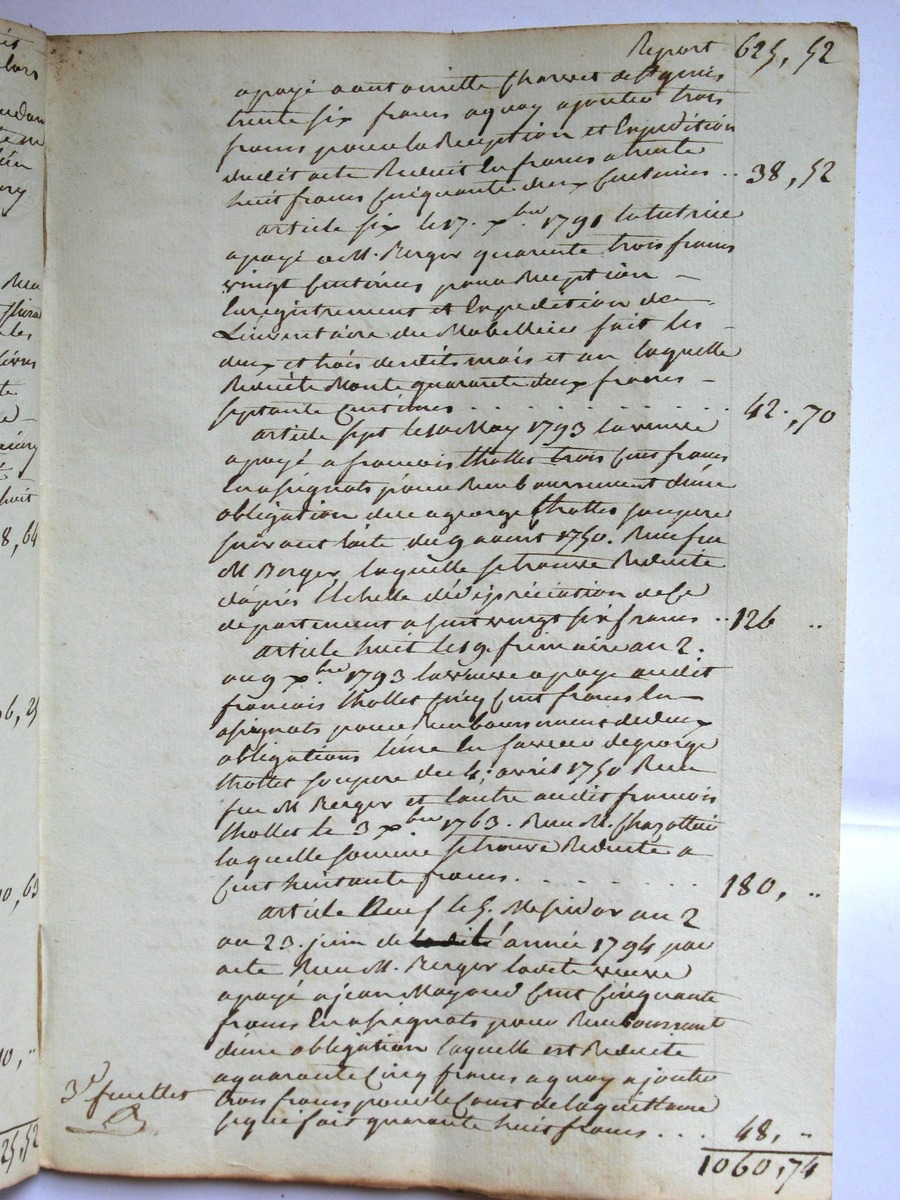 Report 625, 52
a payé a antoinette Charret de St
trente six francs a quoy ajouter trois
francs pour la Reception et Expedition
dudit acte Reduit En francs a trente
huit francs Cinquante deux Centimes .. 38, 52
article six le 17. xbre 1791 la tutrice
a payé a M. Berger quarente trois francs
vingt Centimes pour Reception
Enregistrement et Expedition de
L'inventaire du Mobillier fait les
deux et trois desdits mois et an laquelle
Reduite Monte quarante deux francs
septante Centimes .......... 42, 70
article sept le 10 May 1793 la veuve
a payé a francois thollet trois Cens francs
En asignats pour Remboursement d'une
obligation due a george thollet son pere
suivant l'acte du 9 aoust 1750. Reçu feu
M Berger, laquelle se trouve Reduite
d'aprés l'Echelle de dépréciation de Ce
departement a Cent vingt six francs .. 126 ..
article huit les 9. frimaire an 2.
au 9 xbre 1793 la veuve a paye audit
francois thollet Cinq Cent francs En
asignats pour Remboursement de deux
obligations l'une En faveur de george
thollet son pere du 4. avril 1750 Reçu
feu M Berger et l'autre audit francois
thollet le 3 xbre 1763. Reçu M. Chazottier
laquelle somme se trouve Reduite a
Cent huitante francs. ........ 180, ..
article Neuf le 5. Mesidor an 2
au 23. juin de l'année 1794 par
acte Reçu M. Berger ladete veuve
a payé a jean Mayoud Cent Cinquante
francs En asignats pour Remboursant
d'une obligation laquelle est Reduite
a quarante Cinq francs a quoy ajouter
trois francs pour le Coust de la quittance
se qui fait quarante huit francs ... 48, ..
1060, 74
3e feuillet
8, 64
6, 25
10, 63
10, ..
25, 52